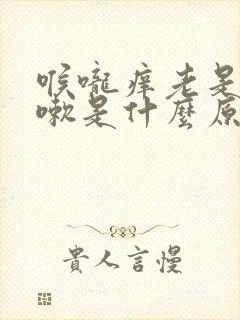 喉嚨痒老是
嗽是什麼原
貴人言慢